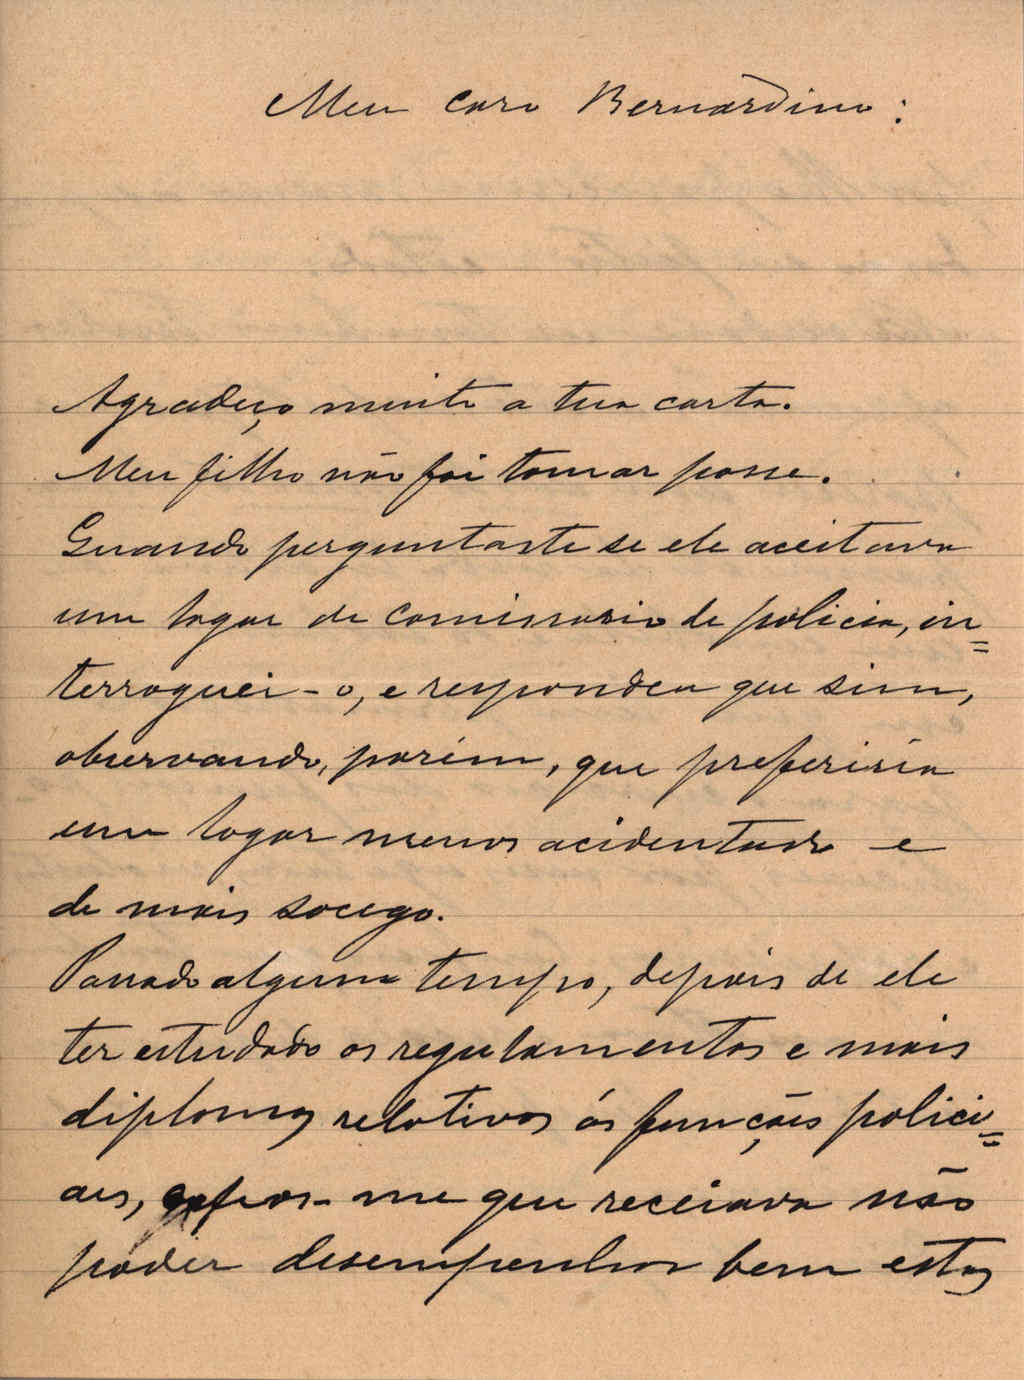 Meu caro Bernardino:
Agradeço muito a tua carta.
Meu filho não foi tomar posse.
Quando perguntaste se ele aceitava
um logar de comissario de policia, in=
terroguei-o, e respondeu que sim,
observando, porém, que preferiria
um logar menos acidentado e
de mais socego.
Passado algum tempo, depois de ele
ter estudado os regulamentos e mais
diplomas relativos ás funções polici=
aes, me que receiava não
poder desempenhar bem estas